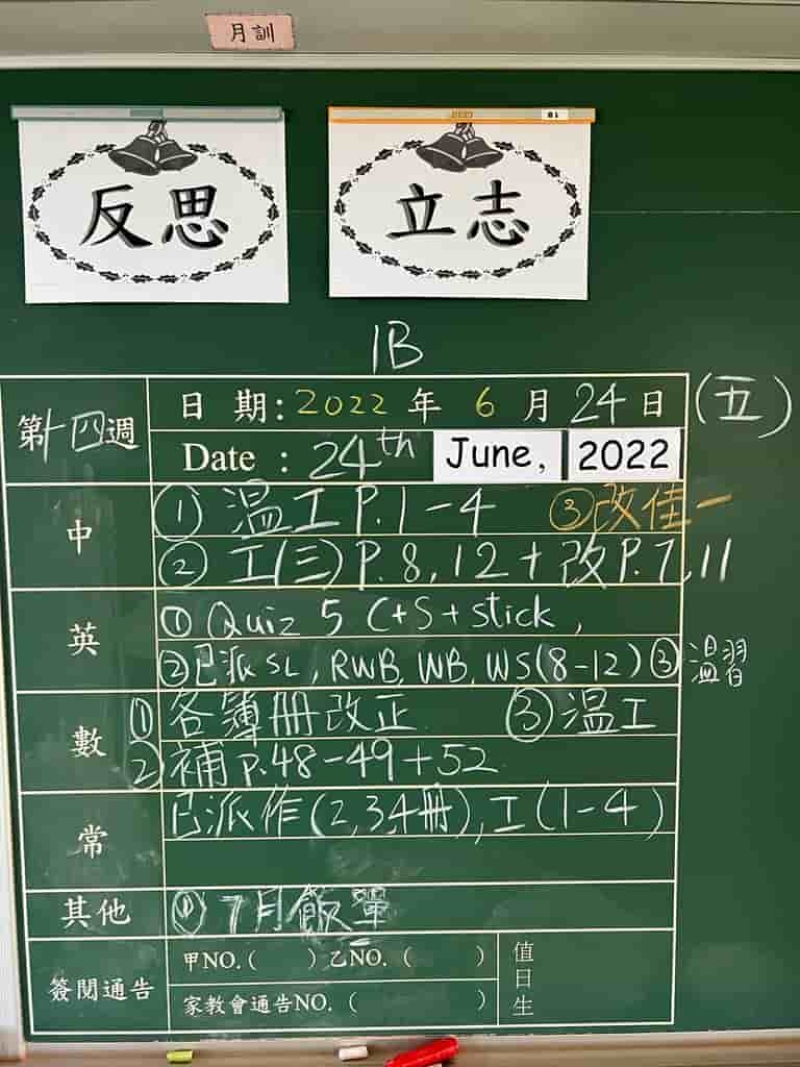 月訓
反思
立志
1B
第十四週
日 期: 2022 年 6 月 24 日 (五)
Date : 24th June, 2022
中
① 温工 P.1-4 ③改佳一
② 工(三) P.8,12 + 改P.7,11
英
① Quiz 5 C+S+stick,
②已派 SL, RWB, WB, WS(8-12) ③ 溫習
數
① 各簿冊改正 ③ 温工
② 補 p.48-49+52
常
已派作(2,3,4冊), 工(1-4)
其他
① 7月飯單
簽閱通告
甲NO.( ) 乙NO. ( )
家教會通告NO. ( )
值日生